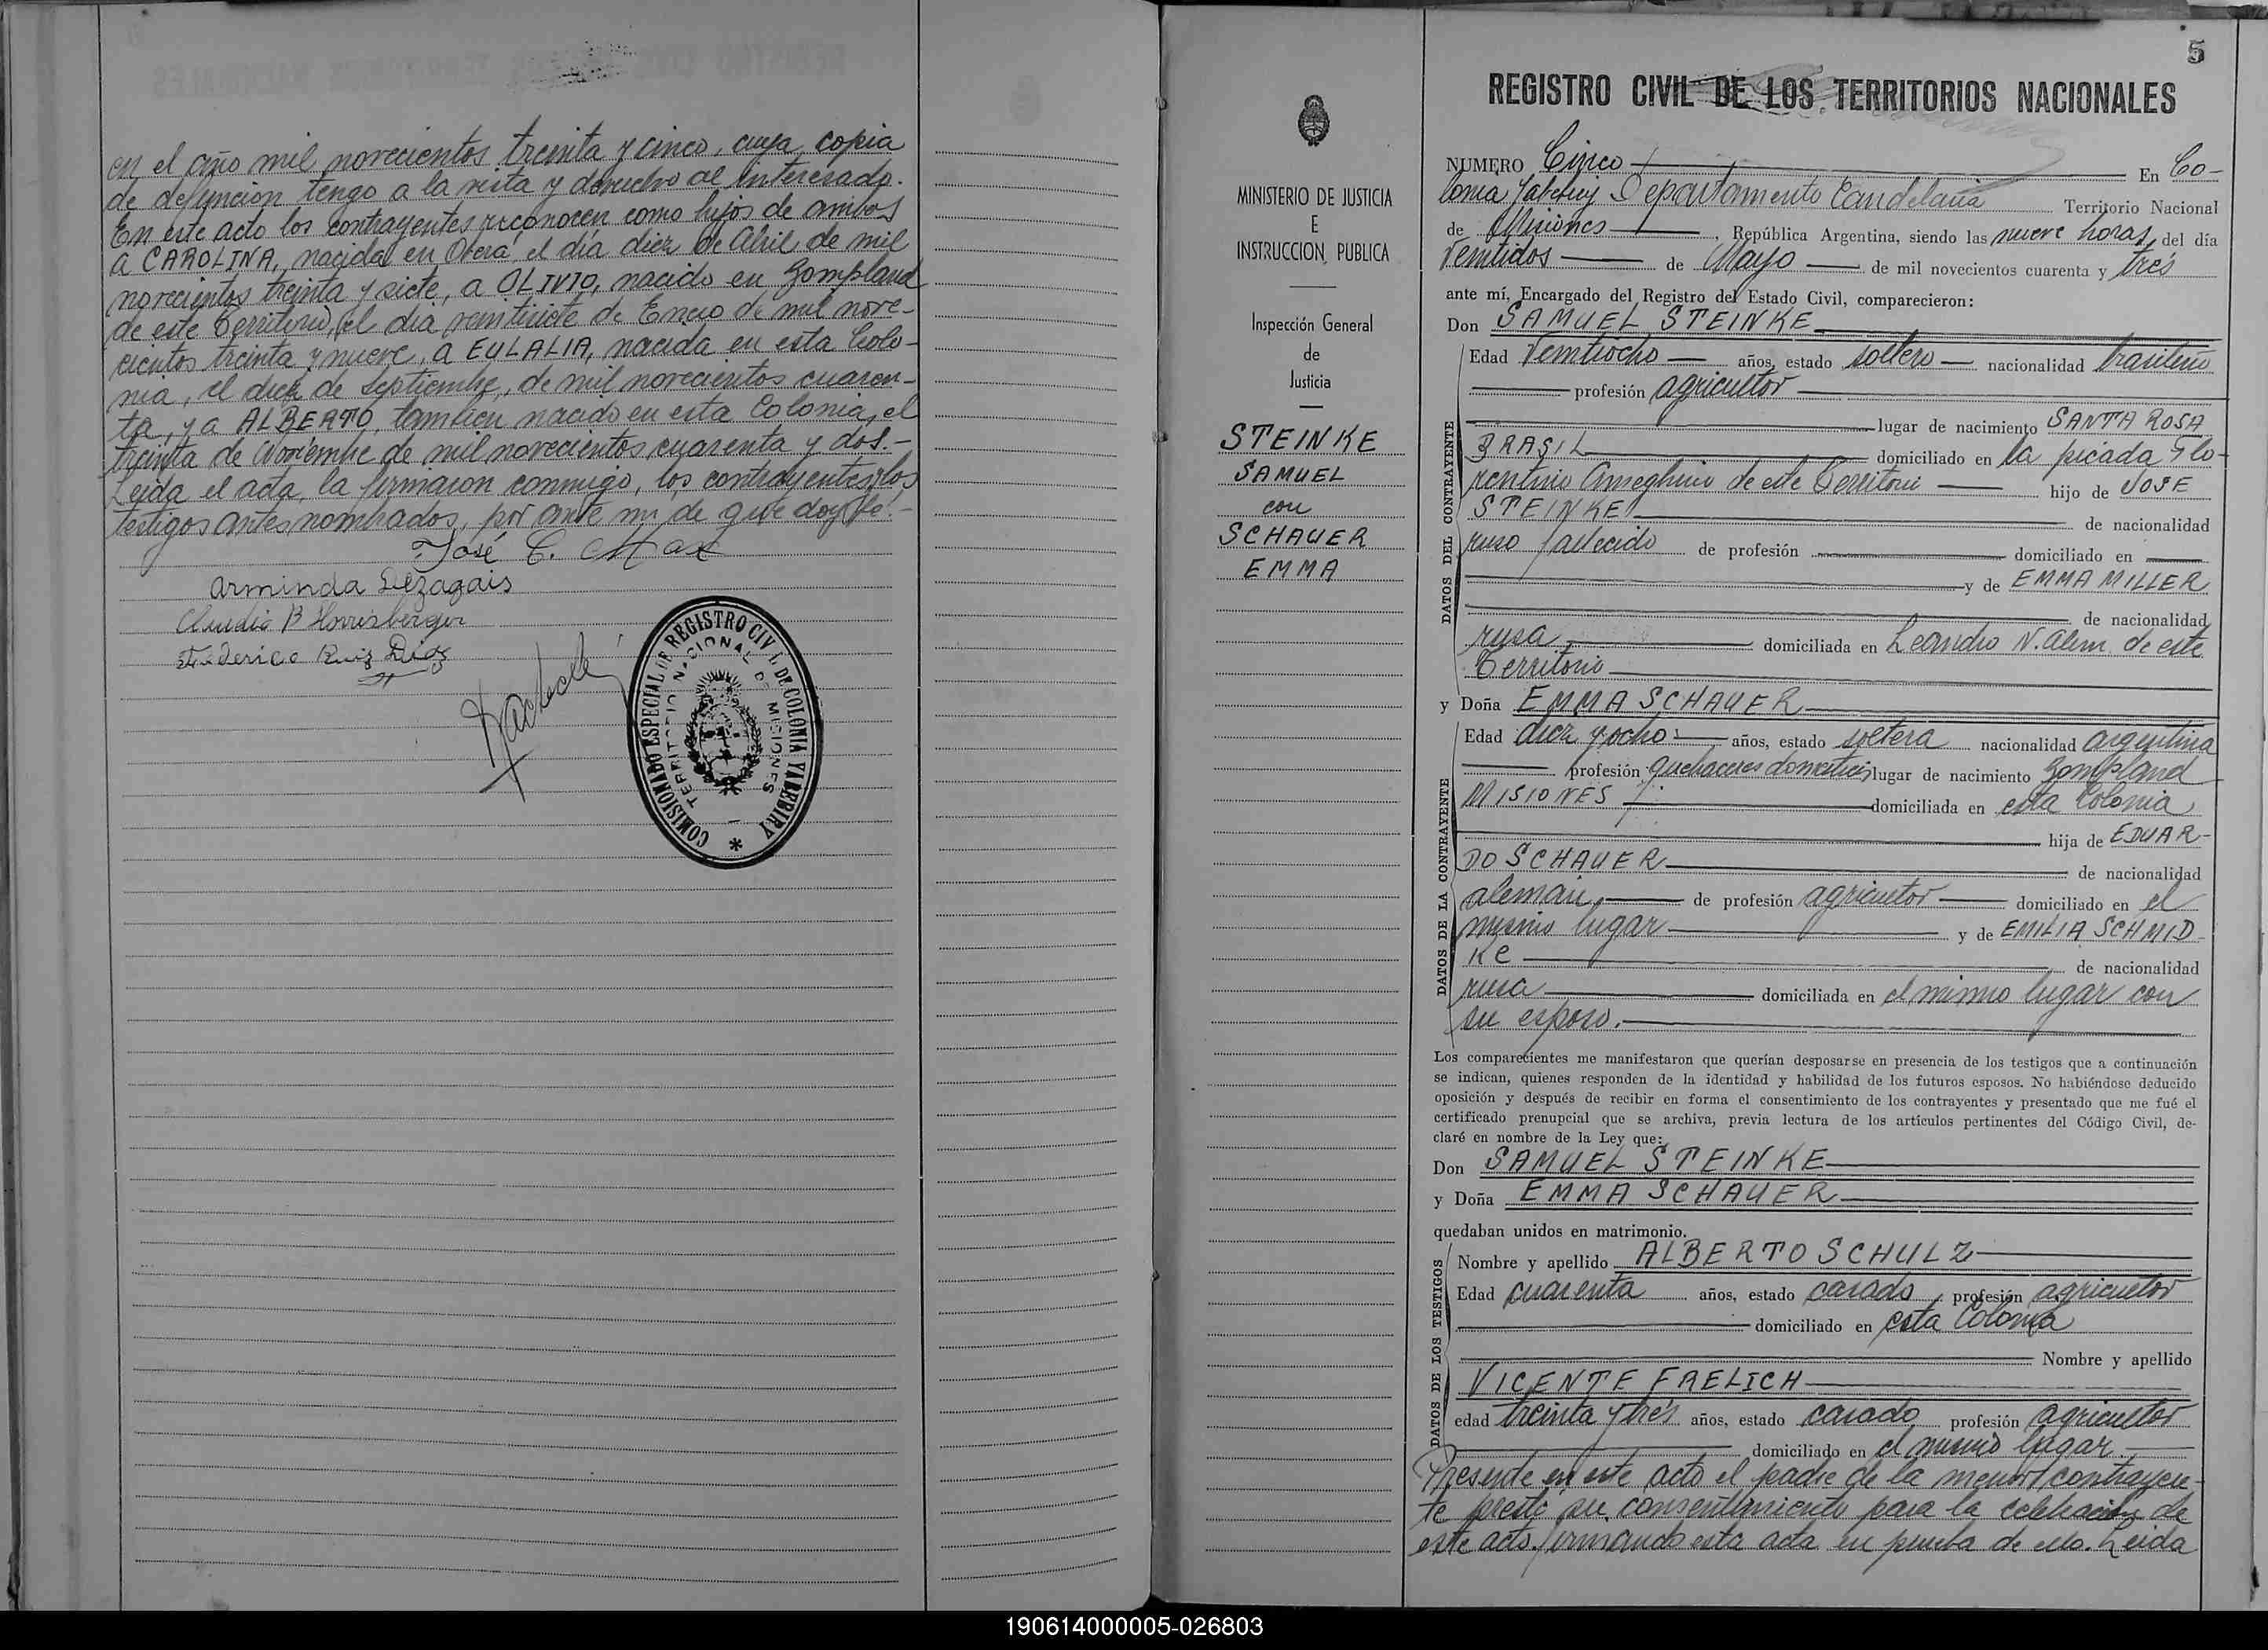 en el año mil novecientos treinta y cinco, cuya copia
de defunción tengo a la vista y devuelvo al interesado.
En este acto los contrayentes reconocen como hijos de ambos
a CAROLINA, nacida en Oberá, el día diez de Abril de mil
novecientos treinta y siete, a OLIVIO, nacido en Bompland
de este Territorio, el día veintisiete de Enero de mil nove-
cientos treinta y nueve, a EULALIA, nacida en esta Colo-
nia, el diez de Septiembre, de mil novecientos cuaren-
ta, y a ALBERTO, también nacido en esta Colonia, el
treinta de Noviembre de mil novecientos cuarenta y dos.-
Leída el acta, la firmaron conmigo, los contrayentes y los
testigos antes nombrados, por ante mi de que doy fé.-
José C.
Arminda
Claudio B
Federico Ruiz Diaz
COMISIONADO ESPECIAL DE REGISTRO CIVIL DE COLONIA YABEBIRY
TERRITORIO NACIONAL DE MISIONES
5
REGISTRO CIVIL DE LOS TERRITORIOS NACIONALES
MINISTERIO DE JUSTICIA
E
INSTRUCCION PUBLICA
Inspección General
de
Justicia
STEINKE
SAMUEL
con
SCHAUER
EMMA
NUMERO Cinco En Co-
lonia Departamento Candelaria Territorio Nacional
de Misiones, República Argentina, siendo las nueve horas, del día
Veintidos de Mayo de mil novecientos cuarenta y trés
ante mí, Encargado del Registro del Estado Civil, comparecieron:
Don SAMUEL STEINKE
DATOS DEL CONTRAYENTE
Edad Veintiocho años, estado soltero nacionalidad brasileno
profesión agricultor
lugar de nacimiento SANTA ROSA
BRASIL domiciliado en la picada Flo-
rentino Ameghino de este Territorio hijo de JOSE
STEINKE de nacionalidad
ruso fallecido de profesión domiciliado en
y de EMMA MILLER
de nacionalidad
rusa domiciliada en Leandro N. Alem de este
Territorio
y Doña EMMA SCHAUER
DATOS DE LA CONTRAYENTE
Edad diez y ocho años, estado soltera nacionalidad argentina
profesión quehaceres domesticos lugar de nacimiento Bompland
MISIONES domiciliada en esta Colonia
hija de EDUAR-
DO SCHAUER de nacionalidad
aleman, de profesión agricultor domiciliado en el
mismo lugar y de EMILIA SCHMID-
KE de nacionalidad
rusa domiciliada en el mismo lugar con
su esposo.
Los comparecientes me manifestaron que querían desposarse en presencia de los testigos que a continuación
se indican, quienes responden de la identidad y habilidad de los futuros esposos. No habiéndose deducido
oposición y después de recibir en forma el consentimiento de los contrayentes y presentado que me fué el
certificado prenupcial que se archiva, previa lectura de los artículos pertinentes del Código Civil, de-
claré en nombre de la Ley que:
Don SAMUEL STEINKE
y Doña EMMA SCHAUER
quedaban unidos en matrimonio.
DATOS DE LOS TESTIGOS
Nombre y apellido ALBERTO SCHULZ
Edad cuarenta años, estado casado, profesión agricultor
domiciliado en esta Colonia
Nombre y apellido
VICENTE FRELICH
edad treinta y trés años, estado casado profesión agricultor
domiciliado en el mismo lugar
Presente en este acto el padre de la menor contrayen-
te prestó su consentimiento para la celebración de
este acto firmando esta acta en prueba de ello. Leida
190614000005-026803